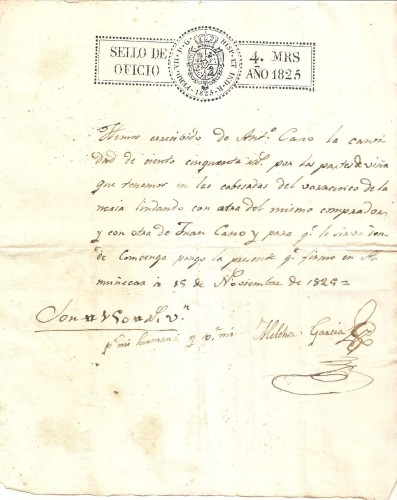 SELLO DE
OFICIO
FERD · VII · D · G · HISP · ET IND · R · 1825
4. MRS
AÑO 1825
Hemos recibido de Antº Cano la canti
dad de ciento cinquenta rs por la parte de viña
que tenemos en las cabesadas del
lindando con otra del mismo comprador
y con otra de Juan Cano y para q. le sirva
de pongo la presente q. firmo en A
muñecar a 15 de Noviembre de 1825=
Son # 150 # rs vn
pr mi hermana y pr mi Melchor Garcia